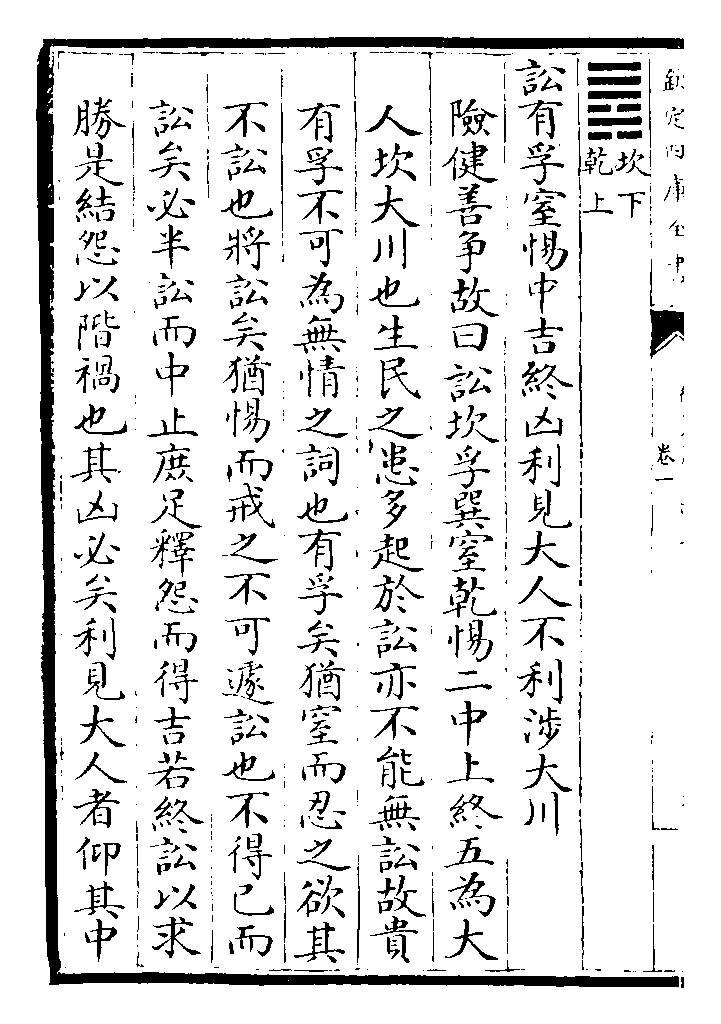 欽定四庫全書
卷一
䷅坎下
乾上
訟有孚窒惕中吉終凶利見大人不利涉大川
險健善爭故曰訟坎孚巽窒乾惕二中上終五為大
人坎大川也生民之患多起於訟亦不能無訟故貴
有孚不可為無情之詞也有孚矣猶窒而忍之欲其
不訟也將訟矣猶惕而戒之不可遽訟也不得已而
訟矣必半訟而中止庶足釋怨而得吉若終訟以求
勝是結怨以階禍也其凶必矣利見大人者仰其中